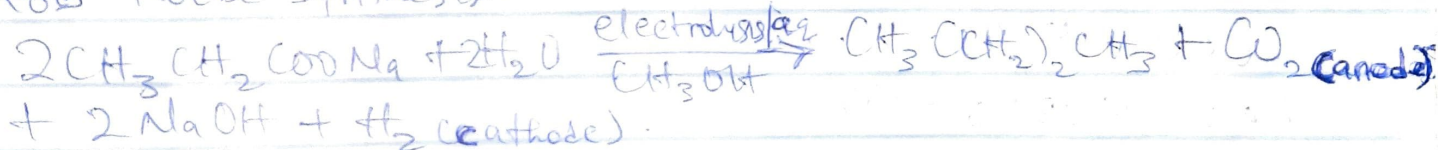 2CH₃CH₂COONa + 2H₂O electrolysis/aq CH₃OH → CH₃(CH₂)₂CH₃ + CO₂ (anode)
+ 2NaOH + H₂ (cathode).